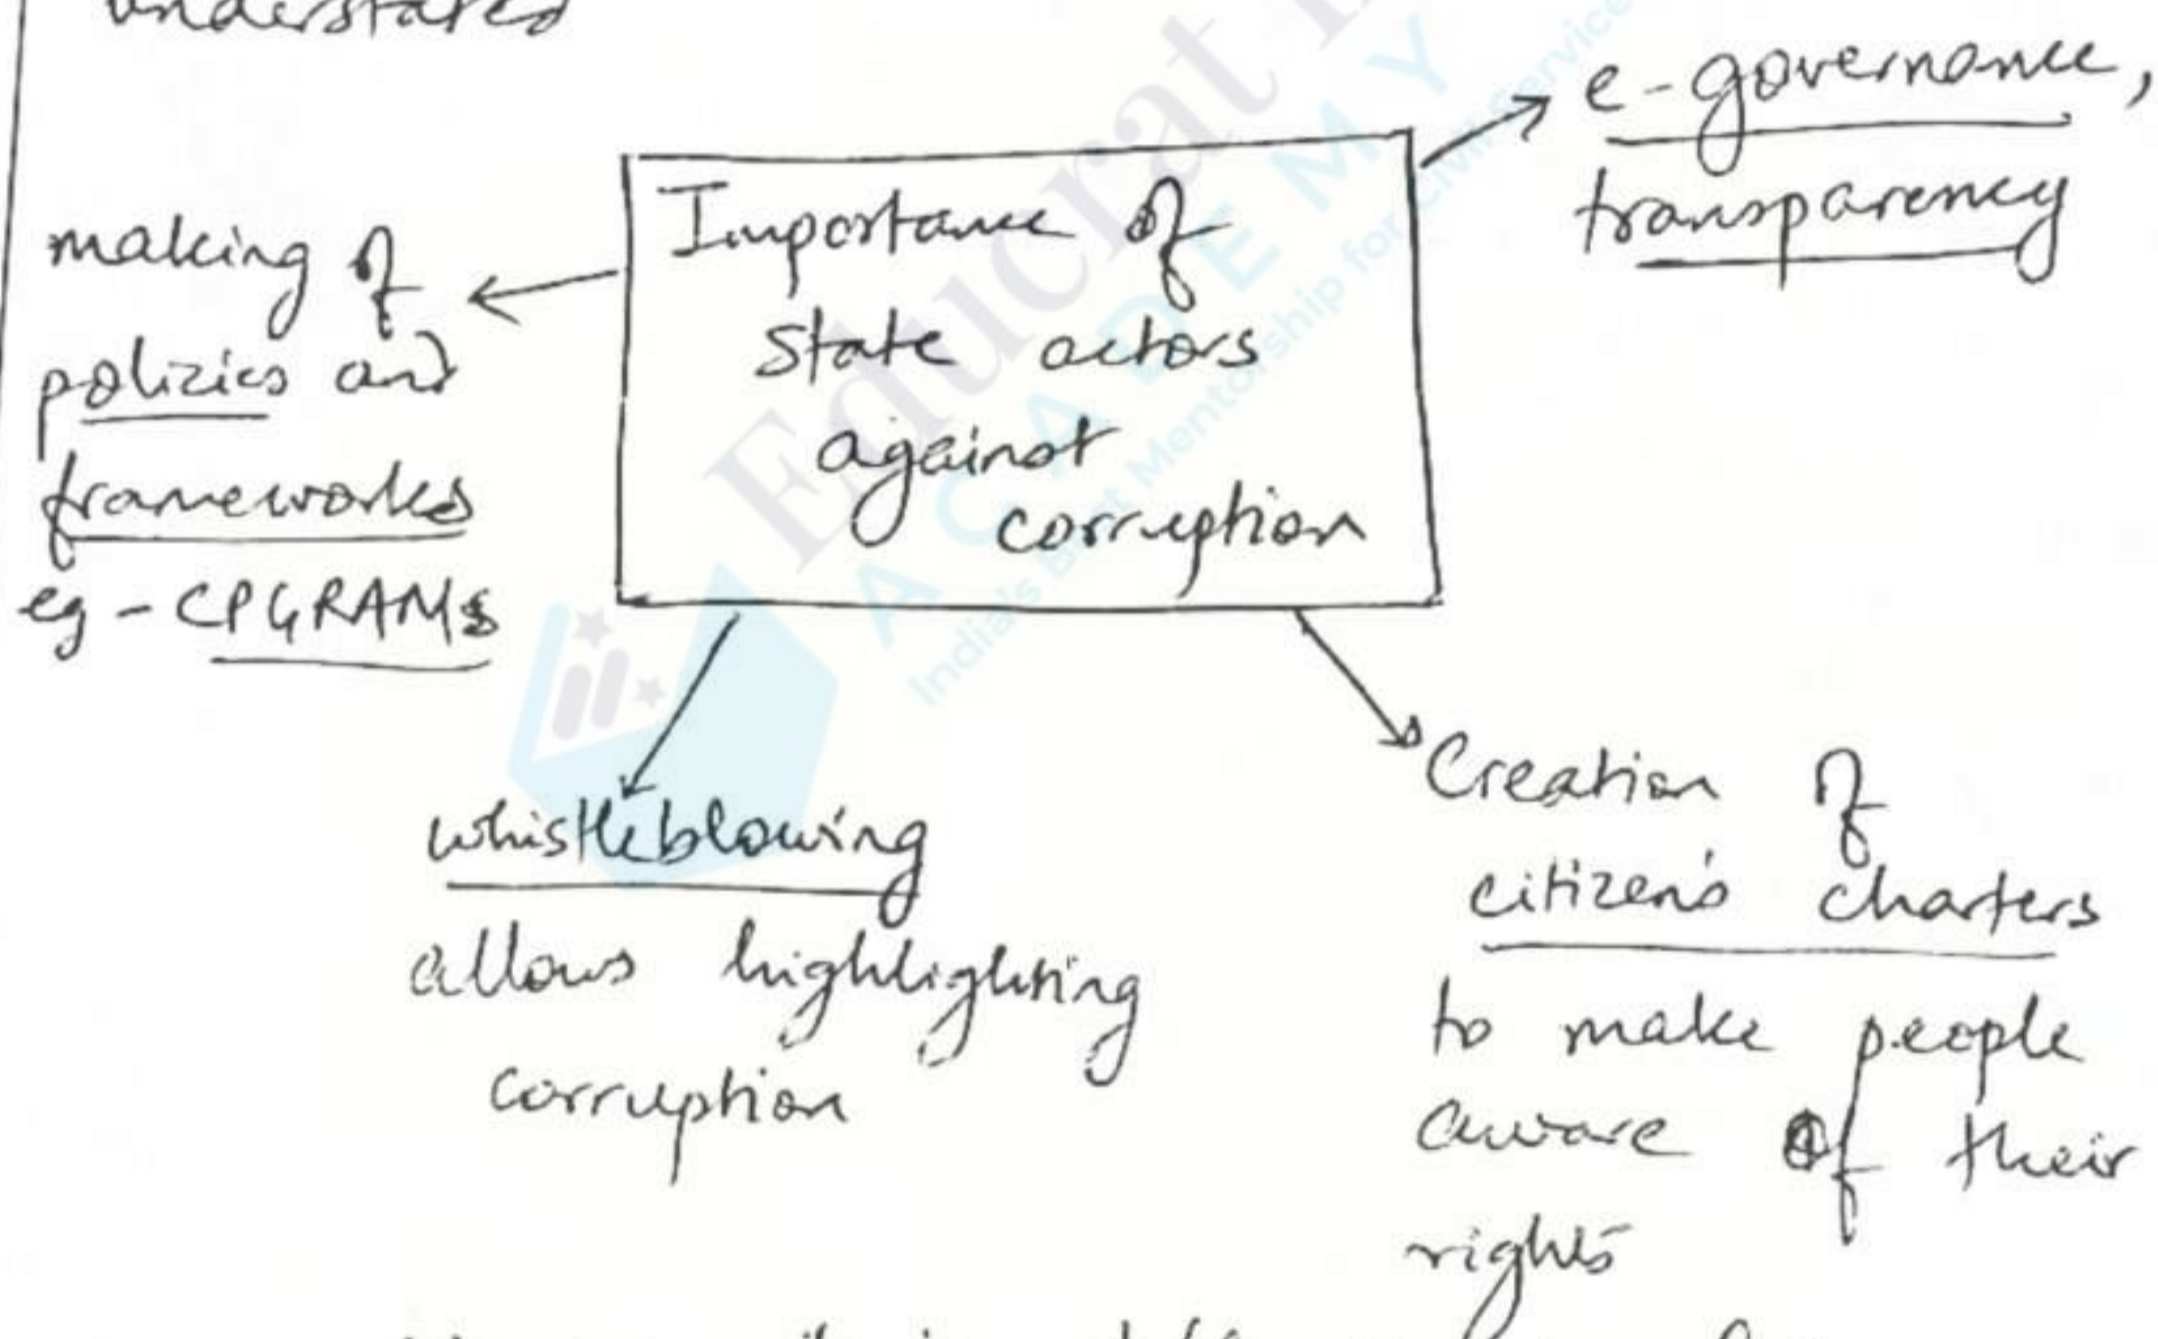 understated
e-governance,
transparency
Importance of
state actors
against
corruption
making of
policies and
frameworks
eg - CPGRAMs
whistleblowing
allows highlighting
corruption
Creation of
citizen's charters
to make people
aware of their
rights
Educrat
ACADEMY
India's Best Mentorship for Civil Service